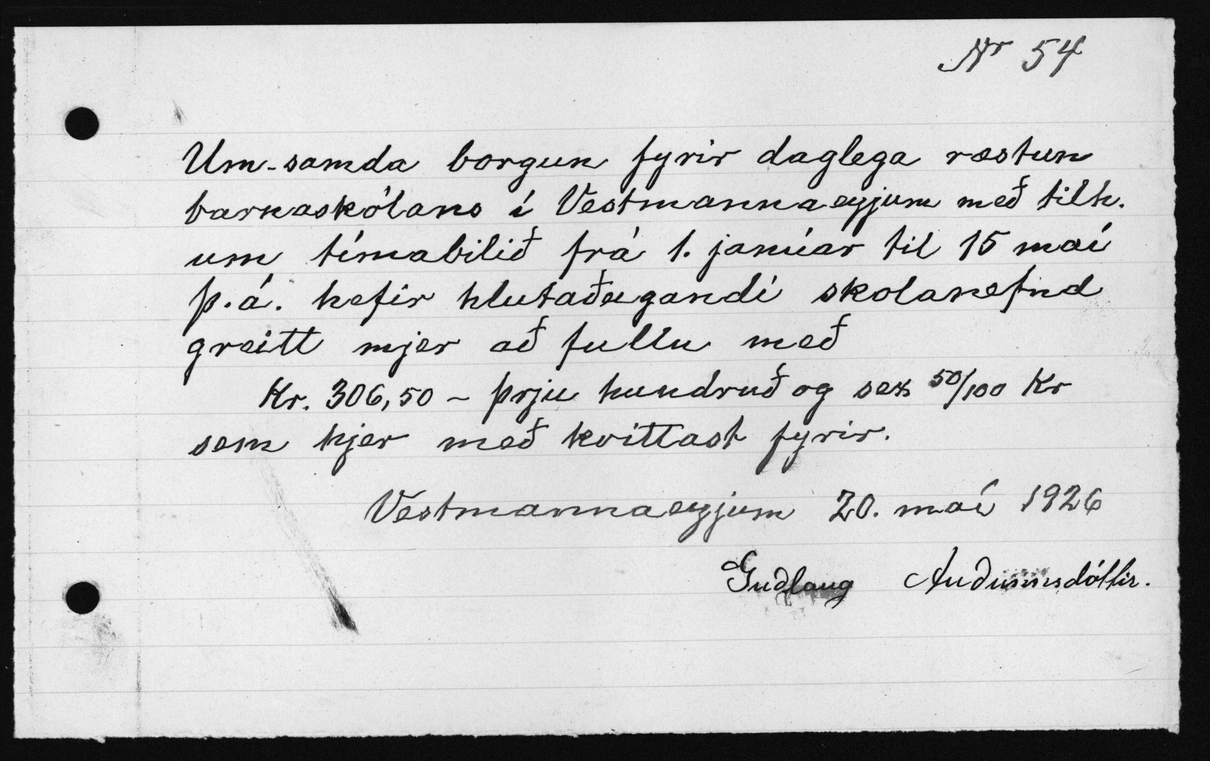 Nr 54
Um-samda borgun fyrir daglega ræstun
barnaskólans í Vestmannaeyjum með tilh.
um tímabilið frá 1. janúar til 15 maí
þ.á. hefir hlutaðeigandi skolanefnd
greitt mjer að fullu með
Kr. 306,50 – þrju hundruð og sex 50/100 Kr
sem hjer með kvittast fyrir.
Vestmannaeyjum 20. maí 1926
Guðlaug Auðunnsdóttir.